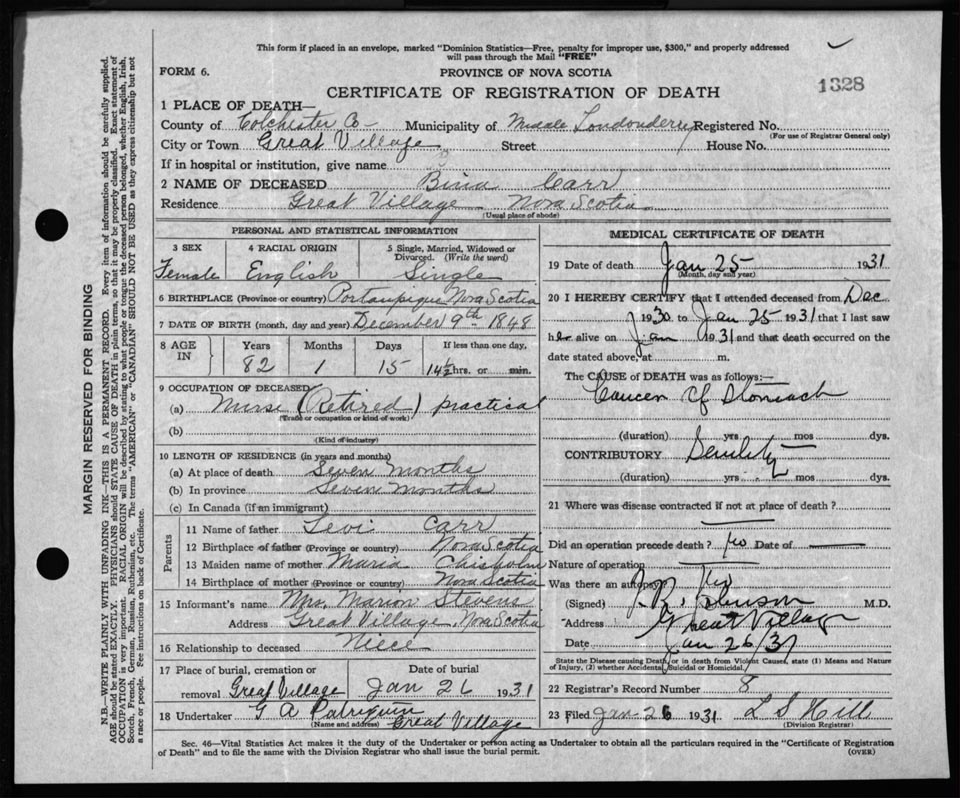 This form if placed in an envelope, marked "Dominion Statistics—Free, penalty for improper use, $300," and properly addressed
will pass through the Mail "FREE"
FORM 6.
PROVINCE OF NOVA SCOTIA
CERTIFICATE OF REGISTRATION OF DEATH
1328
1 PLACE OF DEATH—
County of Colchester Co— Municipality of Middle Londonderry Registered No.
(For use of Registrar General only)
City or Town Great Village Street House No.
If in hospital or institution, give name
2 NAME OF DECEASED Bina Carr
Residence Great Village Nova Scotia
(Usual place of abode)
PERSONAL AND STATISTICAL INFORMATION
3 SEX 4 RACIAL ORIGIN 5 Single, Married, Widowed or Divorced. (Write the word)
Female English Single
6 BIRTHPLACE (Province or country) Portaupique Nova Scotia
7 DATE OF BIRTH (month, day and year) December 9th 1848
8 AGE IN Years Months Days If less than one day,
82 1 15 14½ hrs. or min.
9 OCCUPATION OF DECEASED
(a) Nurse (Retired) practical
(Trade or occupation or kind of work)
(b)
(Kind of industry)
10 LENGTH OF RESIDENCE (in years and months)
(a) At place of death Seven Months
(b) In province Seven Months
(c) In Canada (if an immigrant)
Parents
11 Name of father Levi Carr
12 Birthplace of father (Province or country) Nova Scotia
13 Maiden name of mother Maria Chisholm
14 Birthplace of mother (Province or country) Nova Scotia
15 Informant's name Mrs. Marion Stevens
Address Great Village, Nova Scotia
16 Relationship to deceased Niece
17 Place of burial, cremation or removal Great Village
Date of burial Jan 26 1931
18 Undertaker G A Patriquin
(Name and address) Great Village
MEDICAL CERTIFICATE OF DEATH
19 Date of death Jan 25 1931
(Month, day and year)
20 I HEREBY CERTIFY that I attended deceased from Dec
1930 to Jan 25 1931 that I last saw
her alive on Jan 1931 and that death occurred on the
date stated above, at m.
The CAUSE of DEATH was as follows:—
Cancer of Stomach
(duration) yrs mos dys.
CONTRIBUTORY Senility
(duration) yrs mos dys.
21 Where was disease contracted if not at place of death?
Did an operation precede death? no Date of
Nature of operation
Was there an autopsy? no
(Signed) J. R. Johnson M.D.
Address Great Village
Date Jan 26/31
State the Disease causing Death, or in death from Violent Causes, state (1) Means and Nature
of Injury, (2) whether Accidental, Suicidal or Homicidal.
22 Registrar's Record Number 8
23 Filed Jan 26 1931 L S Hill
(Division Registrar)
Sec. 46—Vital Statistics Act makes it the duty of the Undertaker or person acting as Undertaker to obtain all the particulars required in the "Certificate of Registration
of Death" and to file the same with the Division Registrar who shall issue the burial permit. (OVER)
MARGIN RESERVED FOR BINDING
N.B.—WRITE PLAINLY WITH UNFADING INK—THIS IS A PERMANENT RECORD. Every item of information should be carefully supplied.
AGE should be stated EXACTLY. PHYSICIANS should STATE CAUSE OF DEATH in plain terms, so that it may be properly classified. Exact statement of
OCCUPATION is very important. RACIAL ORIGIN will be described by stating to what people or tongue the deceased person belonged, whether English, Irish,
Scotch, French, German, Russian, Ruthenian, etc. The terms "AMERICAN" or "CANADIAN" SHOULD NOT BE USED as they express citizenship but not
a race or people. See instructions on back of Certificate.